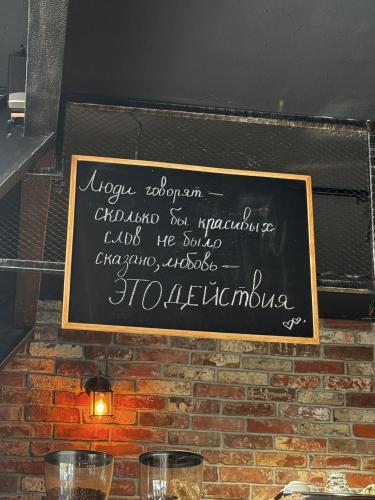 Люди говорят —
сколько бы красивых
слов не было
сказано, любовь —
ЭТО ДЕЙСТВИЯ